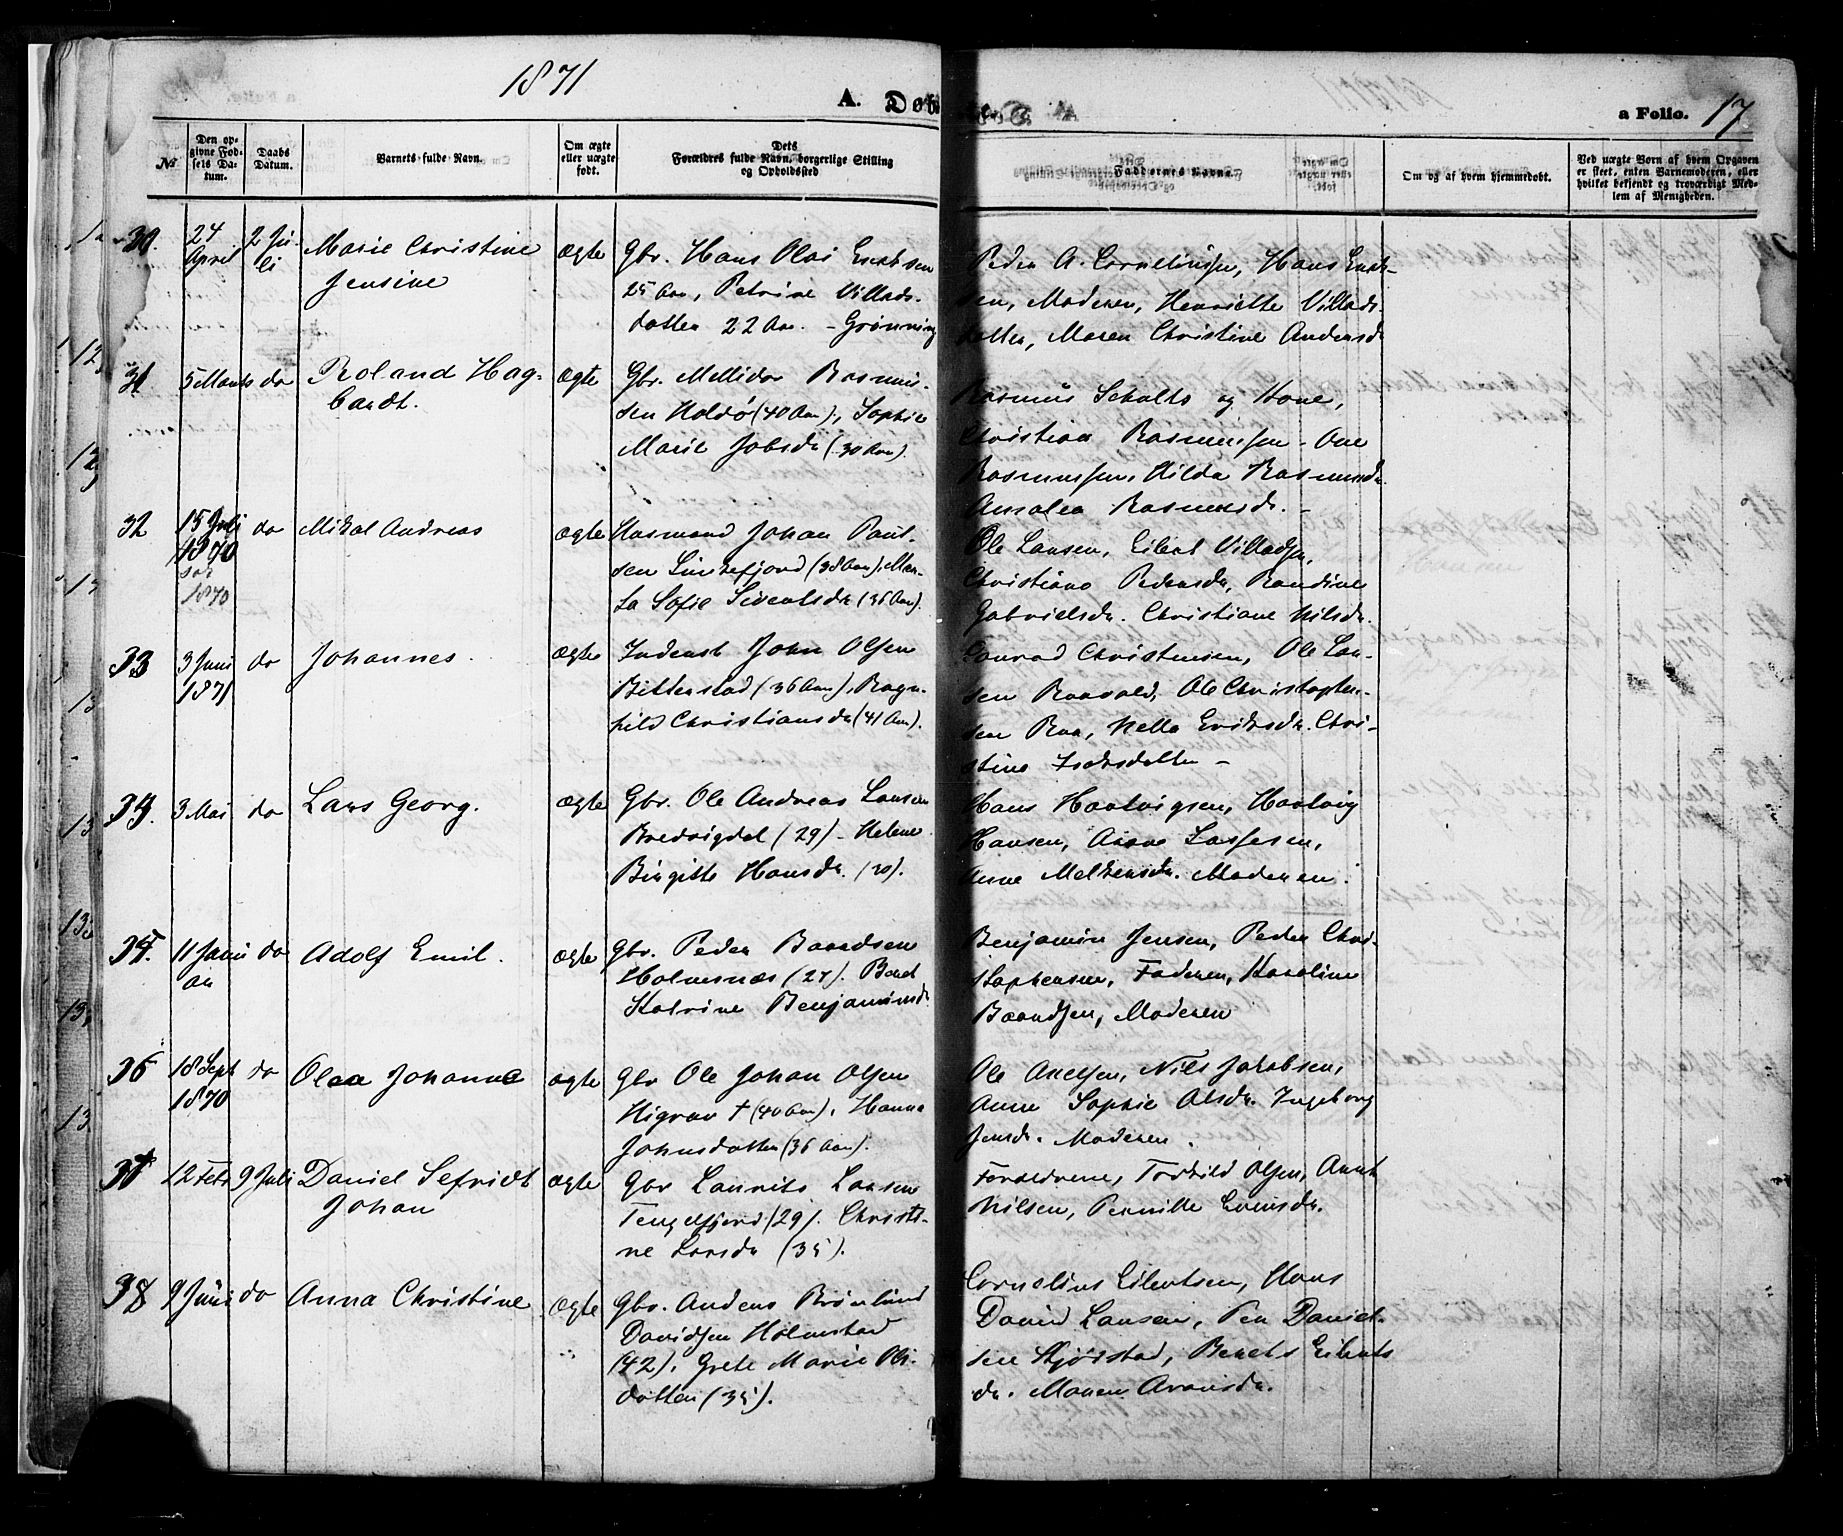 1871
A. Døbte.
a Folio. 17
№
Den op-
givne Fød-
sels Da-
tum.
Daabs
Datum.
Barnets fulde Navn.
Om ægte
eller uægte
født.
Dets
Forældres fulde Navn, borgerlige Stilling
og Opholdssted
Faddernes Navne.
Om og af hvem hjemmedøbt.
Ved uægte Børn af hvem Opgaven
er skeet, enten Barnemoderen, eller
hvilket bekjendt og troværdigt Med-
lem af Menigheden.
30. 24 April 2 Juli Marie Christine
Jensine
ægte
Gbr. Hans Olai Enoksen
25 Aar, Petrine Villads-
datter 22 Aar. - Grønning
Peder A. Corneliussen, Hans Enok-
sen, Moderen, Henriette Villads-
datter, Maren Christine Andersdr
31 5 Marts do Roland Hag-
bardt.
ægte
Gbr. Mellidor Rasmus-
sen Holdø (40 Aar), Sophie
Marie Jobsdr (30 Aar).
Rasmus Schults og Kone,
Christian Rasmussen - One
Rasmussen, Hilda Rasmusdr.
Amalea Rasmusdr. -
32 15 Juli
1870
do Mikal Andreas
ægte
Husmand Johan Paul-
sen (38 Aar), Mar-
ta Sofie Sivertsdr (36 Aar).
1870
Ole Larsen, Eilert Villadsen,
Christiane Pedersdr, Randine
Gabrielsdr. Christiane Nilsdr.
33 3 Juni
1871
do Johannes.
ægte
Inderst John Olsen
Bitterstad (36 Aar), Ragn-
hild Christiansdr (41 Aar).
Conrad Christensen, Ole Lar-
sen, Ole Christopher-
sen Raa, Nella Eriksdr. Chri-
stine Isaksdatter -
34. 3 Mai do Lars Georg.
ægte
Gbr. Ole Andreas Larsen
Bredvigdal (29) - Helene
Birgitte Hansdr. (30).
Hans Hartvigsen, Hartvig
Hansen,
Anne Melkersdr. Moderen.
35. 11 Janu
ar
do Adolf Emil.
ægte
Gbr. Peder Baardsen
Holmsnæs (27). Beret
Katrine Benjaminsdr
Benjamin Jensen, Peder Chri-
stophersen, Faderen, Karoline
Baardsen, Moderen
36 18 Sept
1870
do Olea Johanne
ægte
Gbr Ole Johan Olsen
Higrav † (40 Aar). Hanna
Johnsdatter (36 Aar).
Ole Axelsen, Nils Jakobsen,
Anne Sophie Olsdr. Ingeborg
Jensdr. Moderen.
37 12 Febr 9 Juli Daniel Sefridt
Johan
ægte
Gbr Laurits Larsen
Tengelfjord (29). Christi-
ne Larsdr (35).
Forældrene, Torkild Olsen, Arnt
Nilsen, Pernille Evensdr.
38 9 Juni do Anna Christine
ægte
Gbr. Anders Brønlund
Davidsen Holmstad
(42), Grete Marie Ols-
datter (35).
Cornelius Eilertsen, Hans
David Larsen, Per Daniel-
sen Skjørstad, Berets Eilerts
dr. Maren Aronsdr.